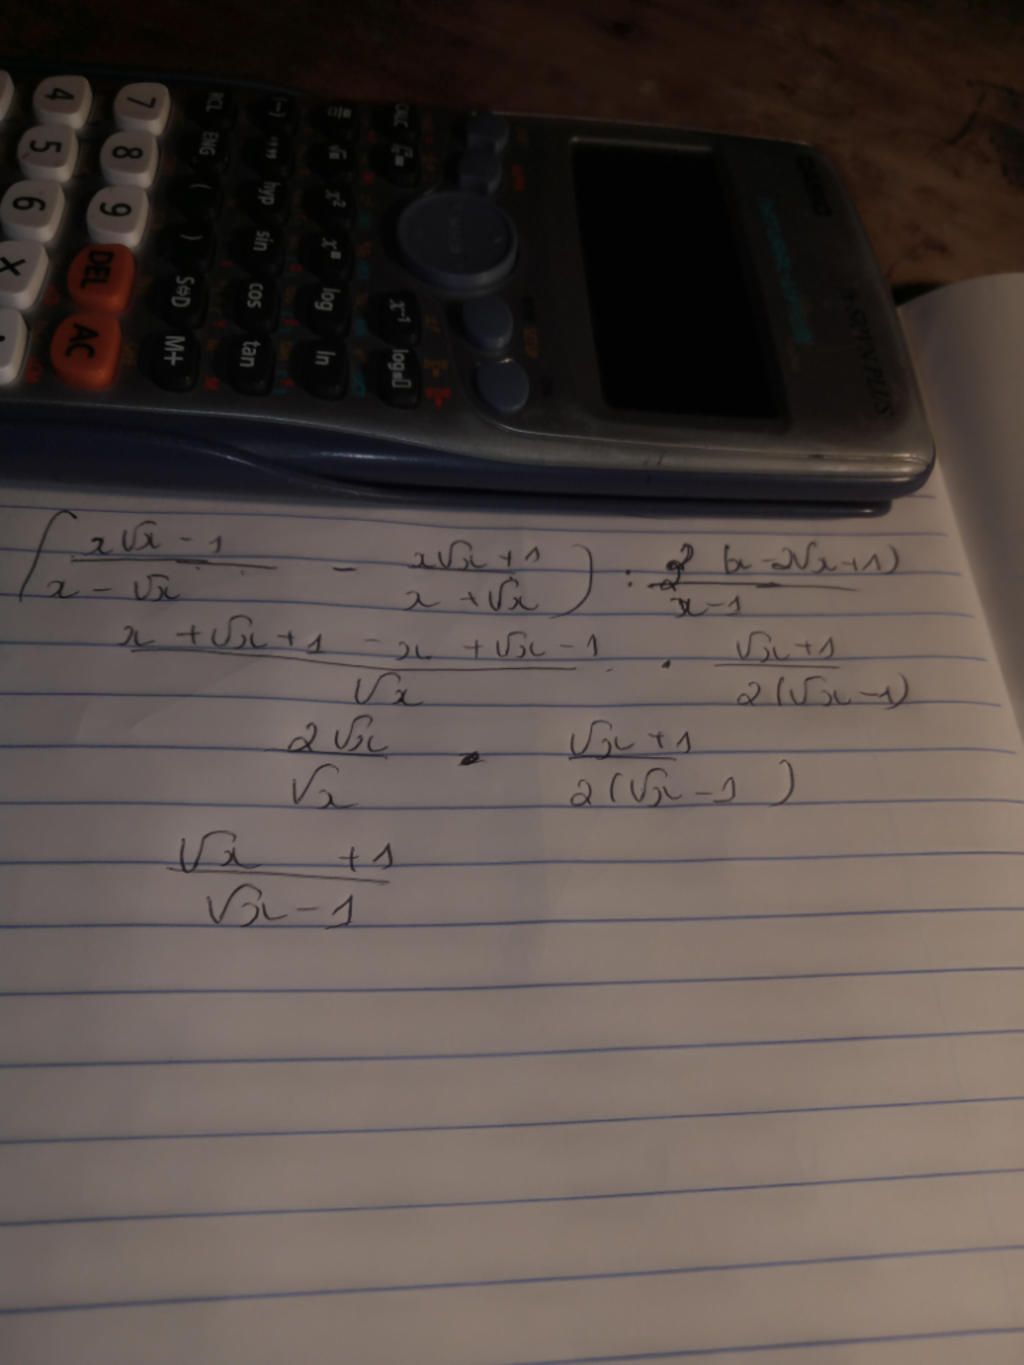 7 8 9 DEL AC
4 5 6 X
RCL ENG ( ) S⇔D M+
(-) hyp sin cos tan
x² x■ log ln
CALC x⁻¹ log■□
(x√x - 1)/(x - √x) - (x√x + 1)/(x + √x)) : 2(x - 2√x + 1)/(x - 1)
(x + √x + 1 - x + √x - 1)/√x . (√x + 1)/(2(√x - 1))
2√x/√x . (√x + 1)/(2(√x - 1))
(√x + 1)/(√x - 1)